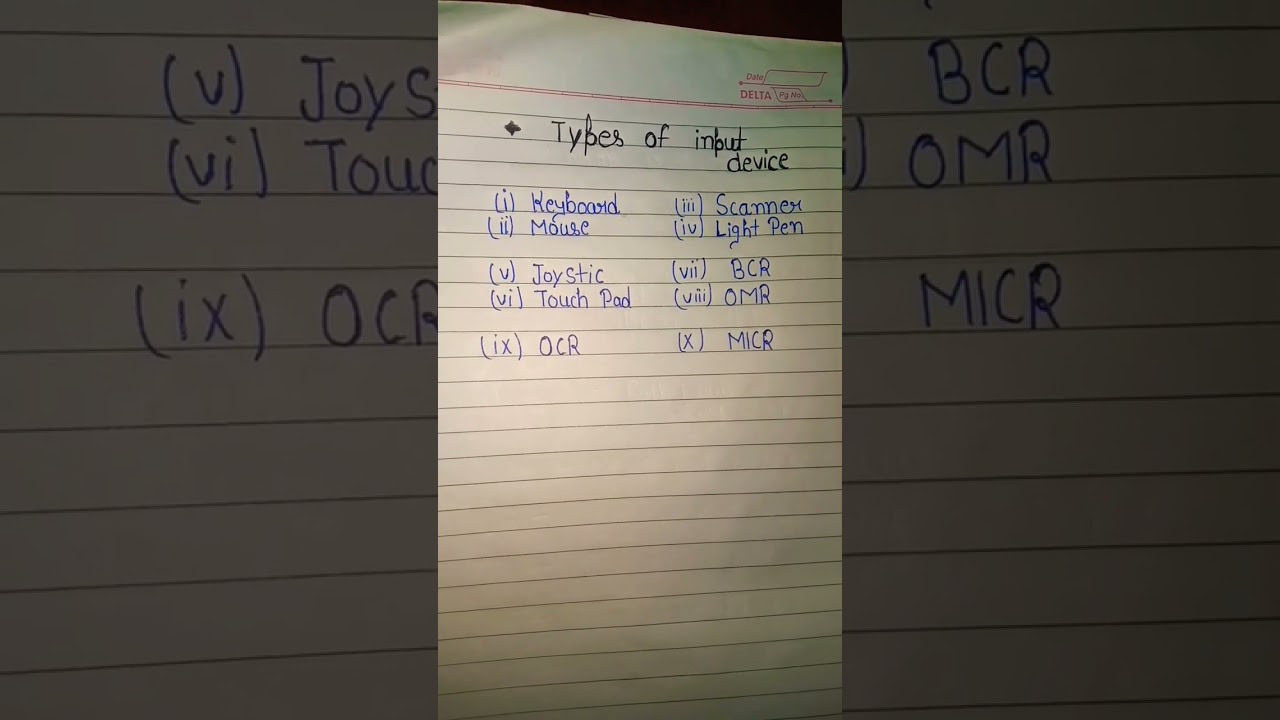 Date
DELTA Pg No.
Types of input
device
(i) Keyboard (iii) Scanner
(ii) Mouse (iv) Light Pen
(v) Joystic (vii) BCR
(vi) Touch Pad (viii) OMR
(ix) OCR (x) MICR
(v) Joys
(vi) Touc
(ix) OCR
) BCR
) OMR
MICR